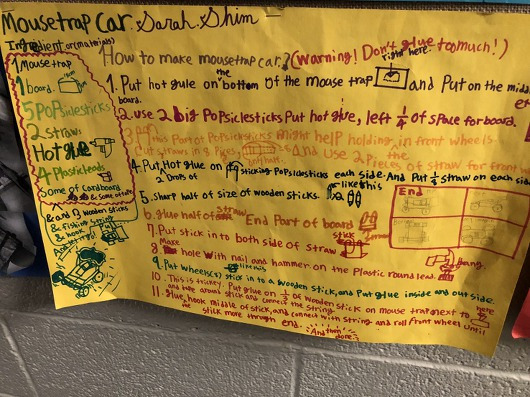 Mousetrap Car. Sarah. Shim
Ingredient or (materials)
How to make mousetrap car.? (Warning! Don't glue too much!)
1 Mouse trap
1 board.
5 Popsicle sticks
2 straws
Hot glue
4 Plastic leads
Some of Cardboard
& and 13 Wooden sticks
& fishing string
& hook
1. Put hot gule on the bottom of the mouse trap right here. and Put on the midd
board.
2. use 2 big Popsicless Put hot glue, left 1/4 of space for board.
3. This Part of Popsickless might help holding in front wheels.
Cut straws in 8 Pipes, and use 2 Pieces of straw for front
4. Put Hot glue on sticking Popsickless each side. And Put 1/8 straw on each side
2 Drops of
5. Sharp half of size of wooden sticks. like this
6. glue half of straw End Part of board
straw
7. Put stick in to both side of straw stick
8. Make hole with nail and hammer on the Plastic round lead. Bang.
9. Put wheel(s) stick in to a wooden stick, and Put glue inside and out side.
10. This is trickey. Put glue on 1/3 of wooden stick on mouse trap next to here
and tube around stick and connect the string.
11. glue, hook middle of stick, and connect with string and roll front wheel until
the stick more through end.
And then done.
End